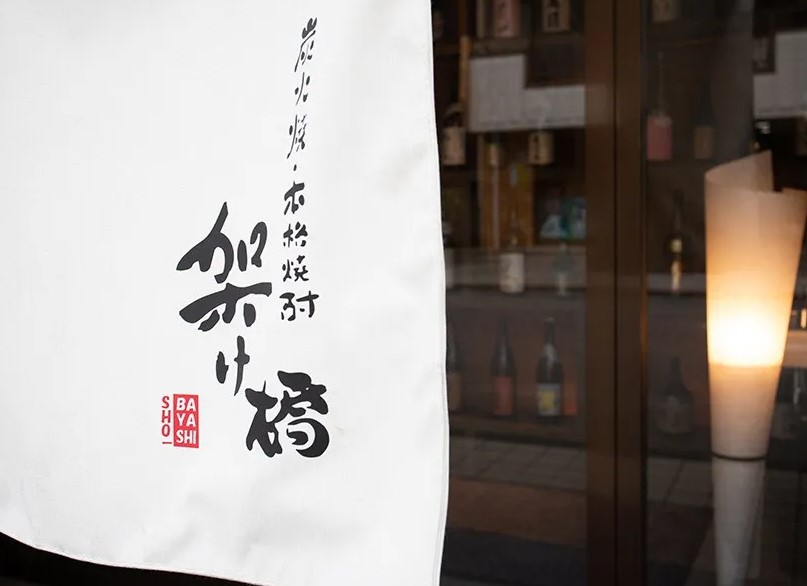 炭火焼・本格焼酎
架け橋
SHO
BA
YA
SHI